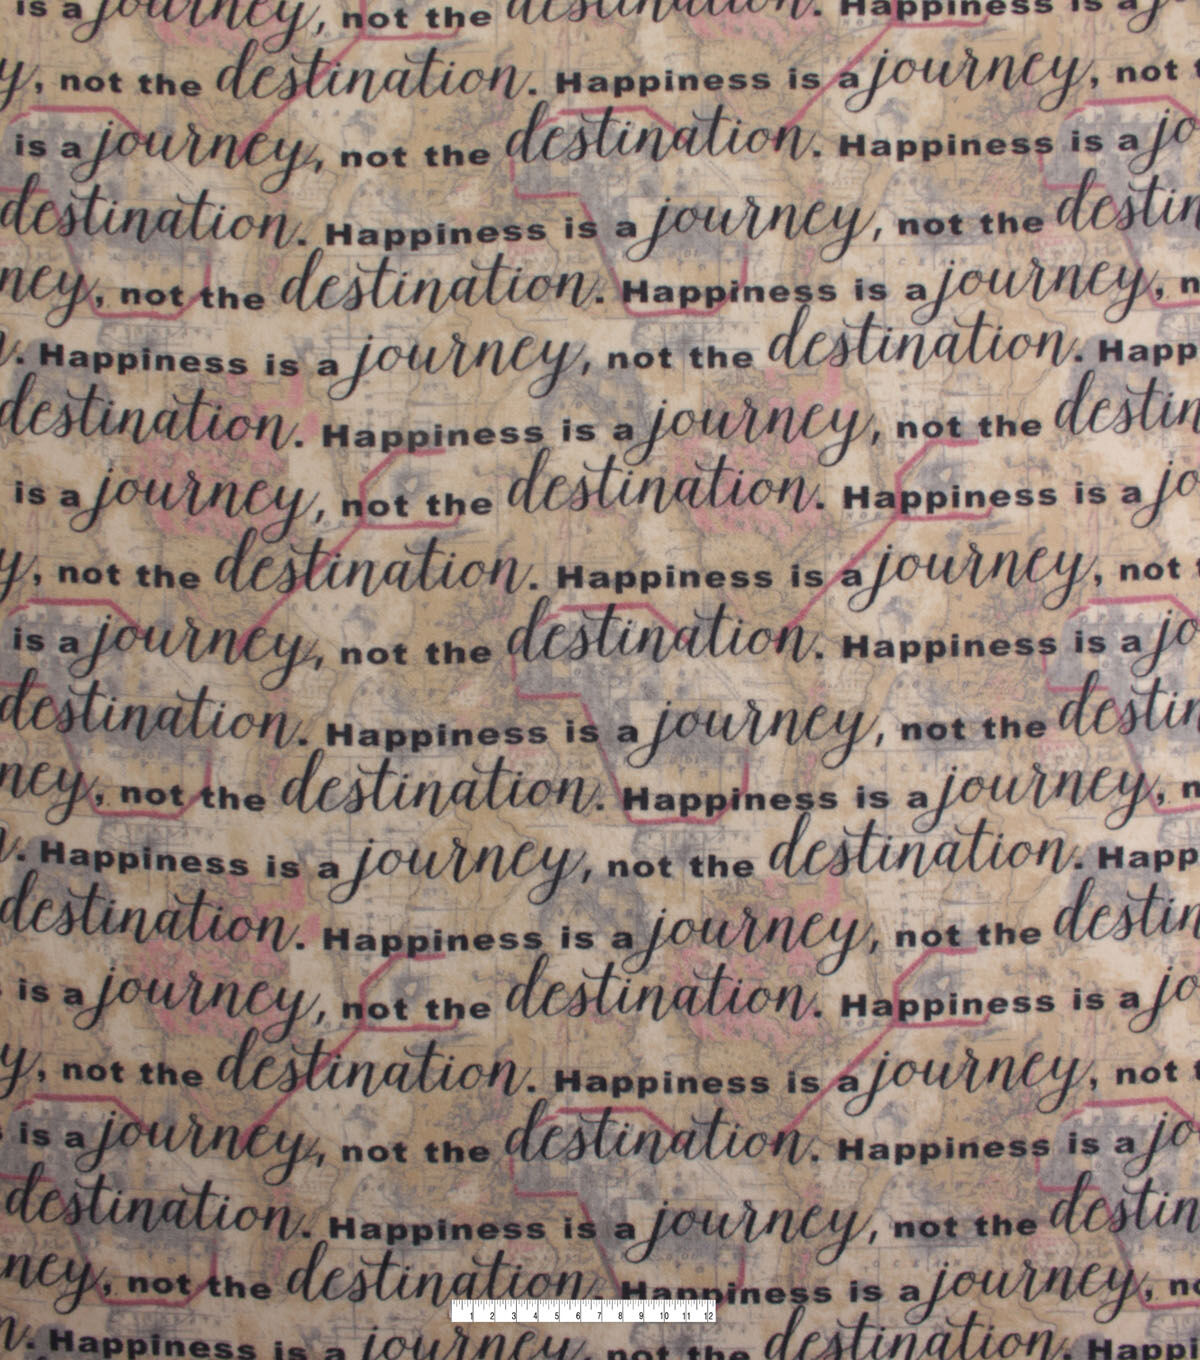 is a journey, not the destination. Happiness is a j
y, not the destination. Happiness is a journey, not t
is a journey, not the destination. Happiness is a jo
destination. Happiness is a journey, not the destin
ney, not the destination. Happiness is a journey, n
n. Happiness is a journey, not the destination. Happ
destination. Happiness is a journey, not the destin
is a journey, not the destination. Happiness is a jo
y, not the destination. Happiness is a journey, not t
is a journey, not the destination. Happiness is a jo
destination. Happiness is a journey, not the destin
ney, not the destination. Happiness is a journey, n
n. Happiness is a journey, not the destination. Happ
destination. Happiness is a journey, not the destin
s is a journey, not the destination. Happiness is a jo
y, not the destination. Happiness is a journey, not t
s is a journey, not the destination. Happiness is a jo
destination. Happiness is a journey, not the destin
ney, not the destination. Happiness is a journey, no
1 2 3 4 5 6 7 8 9 10 11 12
n. Happiness is a journey, not the destination. Happi